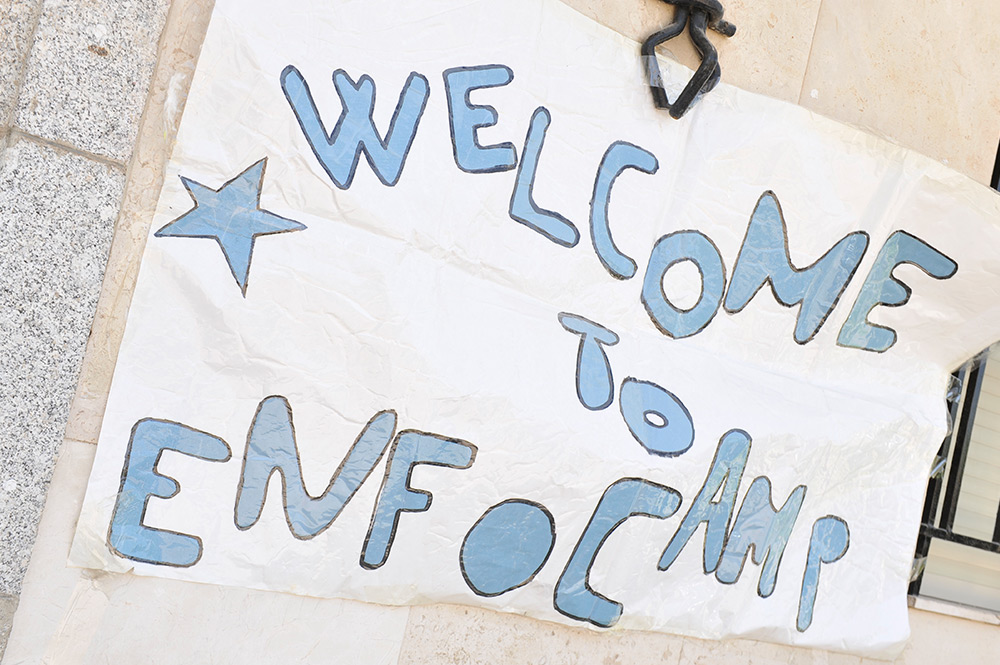 WELCOME
TO
ENFOCAMP